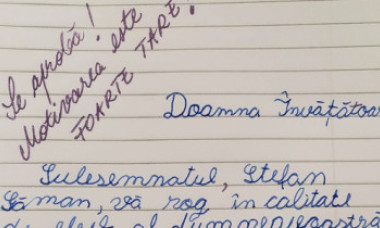 Se aprobă!
Motivarea este
FOARTE TARE!
Doamna Învățătoa
Sulesemnatul, Ștefan
Șăman, vă rog în calitate
de elev al dumneavoastră